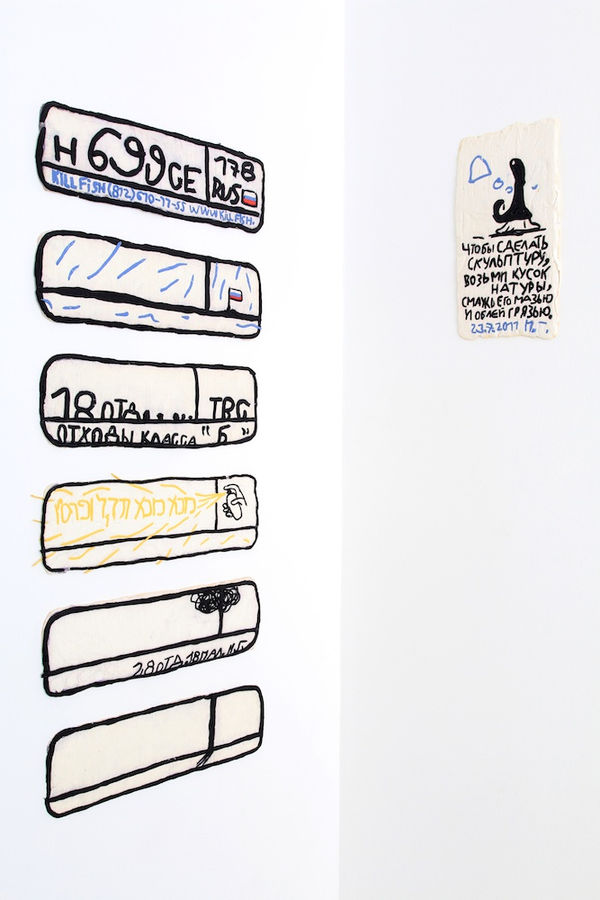 H 699 GE 178
RUS
KILLFISH (812) 670-77-55 WWW.KILLFISH.
18 ОТД..... TRG
ОТХОДЫ КЛАССА "Б"
מנא מנא תקל ופרסין
28 ОТД. 18 ПАЛ.
ЧТОБЫ СДЕЛАТЬ
СКУЛЬПТУРУ,
ВОЗЬМИ КУСОК
НАТУРЫ,
СМАЖЬ ЕГО МАЗЬЮ
И ОБЛЕЙ ГРЯЗЬЮ.
23.7.2017